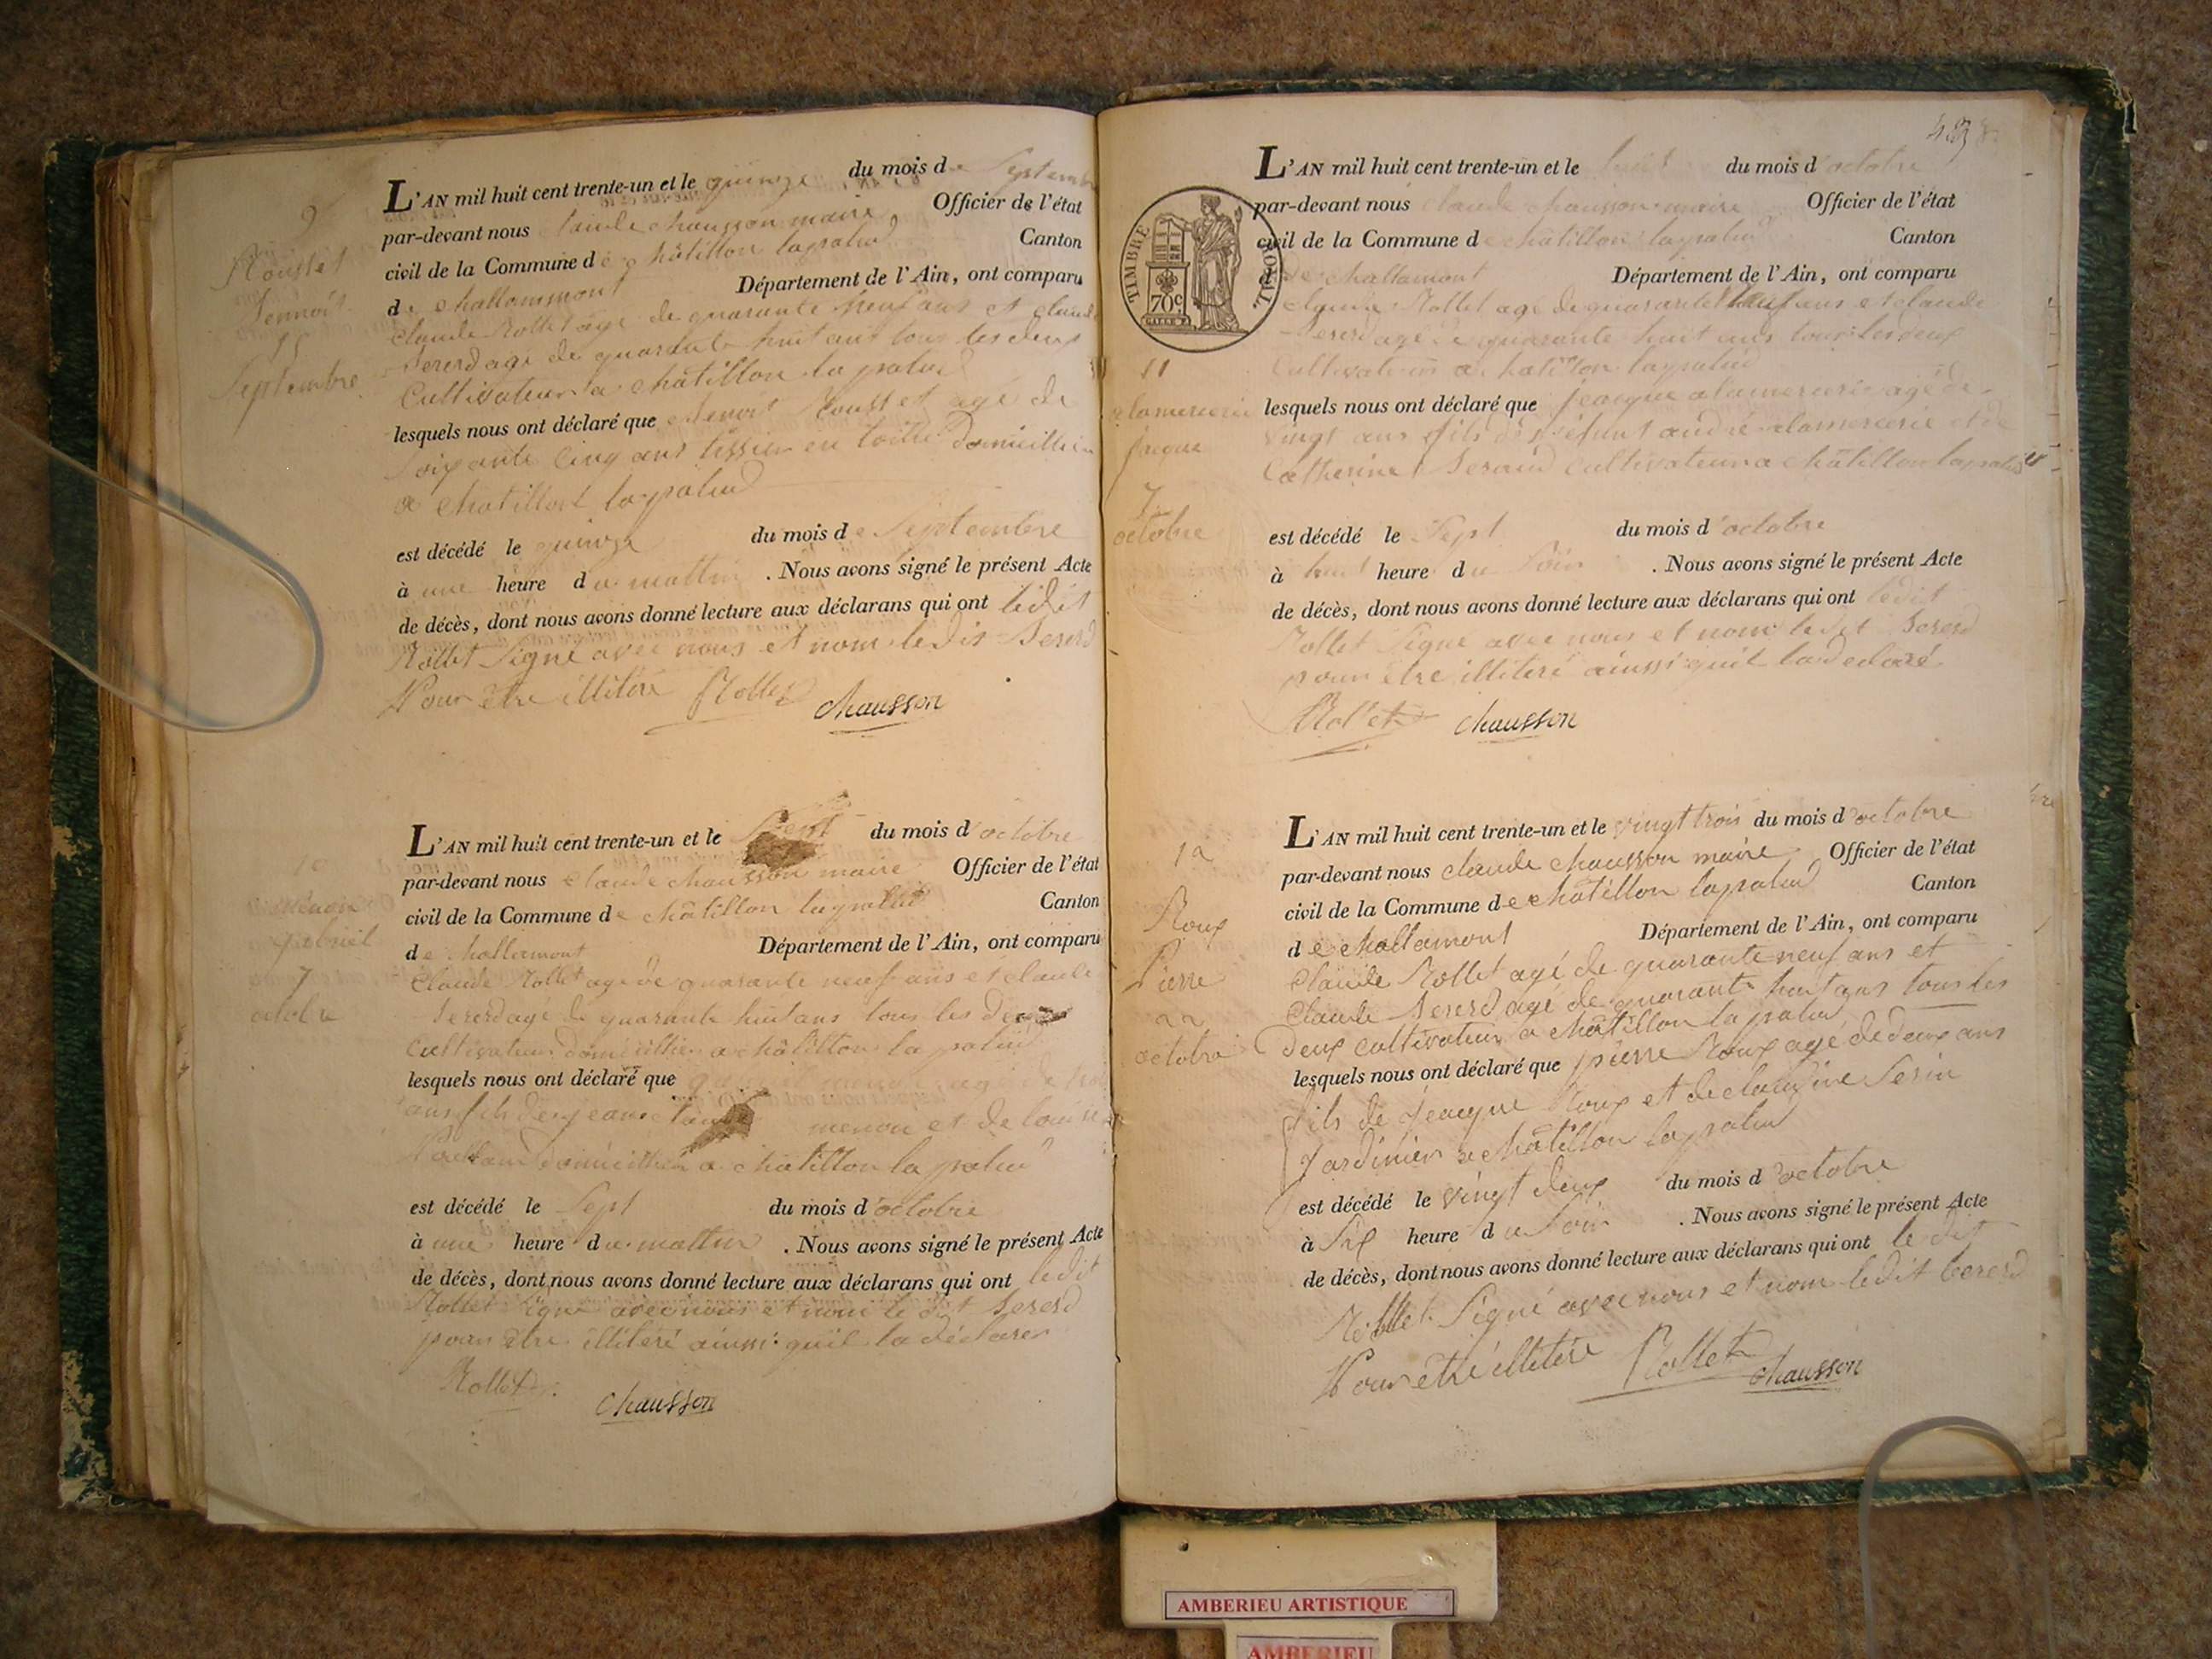 9
Rousset
Bennoit
15
Septembre
L'AN mil huit cent trente-un et le quinze du mois de Septembre
par-devant nous Claude chausson maire Officier de l'état
civil de la Commune de châtillon lapalud Canton
de challamont Département de l'Ain, ont comparu
Claude Rollet agé de quarante neuf ans et claude
Sererd agé de quarante huit ans tous les deux
Cultivateur a châtillon la palud
lesquels nous ont déclaré que benoit Rousset agé de
soixante cinq ans tissier en toille domicillié
a chatillon la palud
est décédé le quinze du mois de Septembre
à une heure du mattin . Nous avons signé le présent Acte
de décès, dont nous avons donné lecture aux déclarans qui ont ledit
Rollet Signé avec nous et nom ledit Sererd
Pour être illitéré Rollet chausson
gabriel
7
octobre
L'AN mil huit cent trente-un et le Sept du mois d'octobre
par-devant nous claude chausson maire Officier de l'état
civil de la Commune de châtillon lapallud Canton
de challamont Département de l'Ain, ont comparu
Claude Rollet agé de quarante neuf ans et claude
Sererd agé de quarante huit ans tous les deux
Cultivateur domicillier a châtillon la palud
lesquels nous ont déclaré que agé de
ans fils de jean claude menou et de louise
domicillier a châtillon la palud
est décédé le Sept du mois d'octobre
à une heure du mattin . Nous avons signé le présent Acte
de décès, dont nous avons donné lecture aux déclarans qui ont ledit
Rollet Signé avec nous et nom le dit Sererd
pour être illitéré ainssi quil la déclarer
Rollet chausson
TIMBRE ROYAL
70c
11
alamercerie
jacque
7
octobre
L'AN mil huit cent trente-un et le huit du mois d'octobre
par-devant nous Claude chausson maire Officier de l'état
civil de la Commune de châtillon lapalud Canton
de challamont Département de l'Ain, ont comparu
claude Rollet agé de quarante neuf ans et claude
Sererd agé de quarante huit ans tous les deux
Cultivateur a chatillon lapalud
lesquels nous ont déclaré que jeacque alamercerie agé de
vingt ans fils de défunt andré alamercerie et de
Catherine Seraud Cultivateur a châtillon lapalud
est décédé le Sept du mois d'octobre
à huit heure du Soir . Nous avons signé le présent Acte
de décès, dont nous avons donné lecture aux déclarans qui ont ledit
Rollet Signé avec nous et nom ledit Sererd
pour être illitéré ainssi quil la déclaré
Rollet chausson
12
Roux
Pierre
22
octobre
L'AN mil huit cent trente-un et le vingt trois du mois d'octobre
par-devant nous claude chausson maire Officier de l'état
civil de la Commune de châtillon lapalud Canton
de challamont Département de l'Ain, ont comparu
Claude Rollet agé de quarante neuf ans et
Claude Sererd agé de quarante huit ans tous les
deux cultivateur a châtillon la palud
lesquels nous ont déclaré que pierre Roux agé de deux ans
fils de Jeacque Roux et de claudine Serin
Jardinier a châtillon la palud
est décédé le vingt deux du mois d'octobre
à Six heure du Soir . Nous avons signé le présent Acte
de décès, dont nous avons donné lecture aux déclarans qui ont le dit
Rollet Signé avec nous et nom ledit Cererd
Pour être illitéré Rollet chausson
AMBERIEU ARTISTIQUE
AMBERIEU